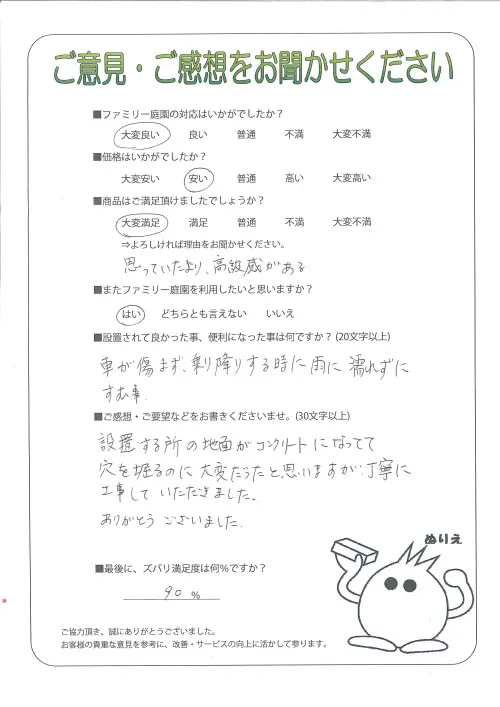 ご意見・ご感想をお聞かせください
■ファミリー庭園の対応はいかがでしたか？
大変良い 良い 普通 不満 大変不満
■価格はいかがでしたか？
大変安い 安い 普通 高い 大変高い
■商品はご満足頂けましたでしょうか？
大変満足 満足 普通 不満 大変不満
⇒よろしければ理由をお聞かせください。
思っていたより、高級感がある
■またファミリー庭園を利用したいと思いますか？
はい どちらとも言えない いいえ
■設置されて良かった事、便利になった事は何ですか？(20文字以上)
車が傷まず、乗り降りする時に雨に濡れずに
すむ事
■ご感想・ご要望などをお書きくださいませ。(30文字以上)
設置する所の地面がコンクリートになってて
穴を堀るのに大変だったと思いますが丁寧に
工事していただきました。
ありがとうございました.
ぬりえ
■最後に、ズバリ満足度は何％ですか？
90 %
ご協力頂き、誠にありがとうございました。
お客様の貴重な意見を参考に、改善・サービスの向上に活かして参ります。